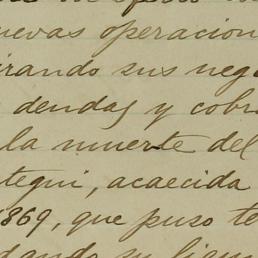 uevas operacion
irando sus neg
dendas y cobr
la muerte del
tegui, acaecida
1869, que puso te